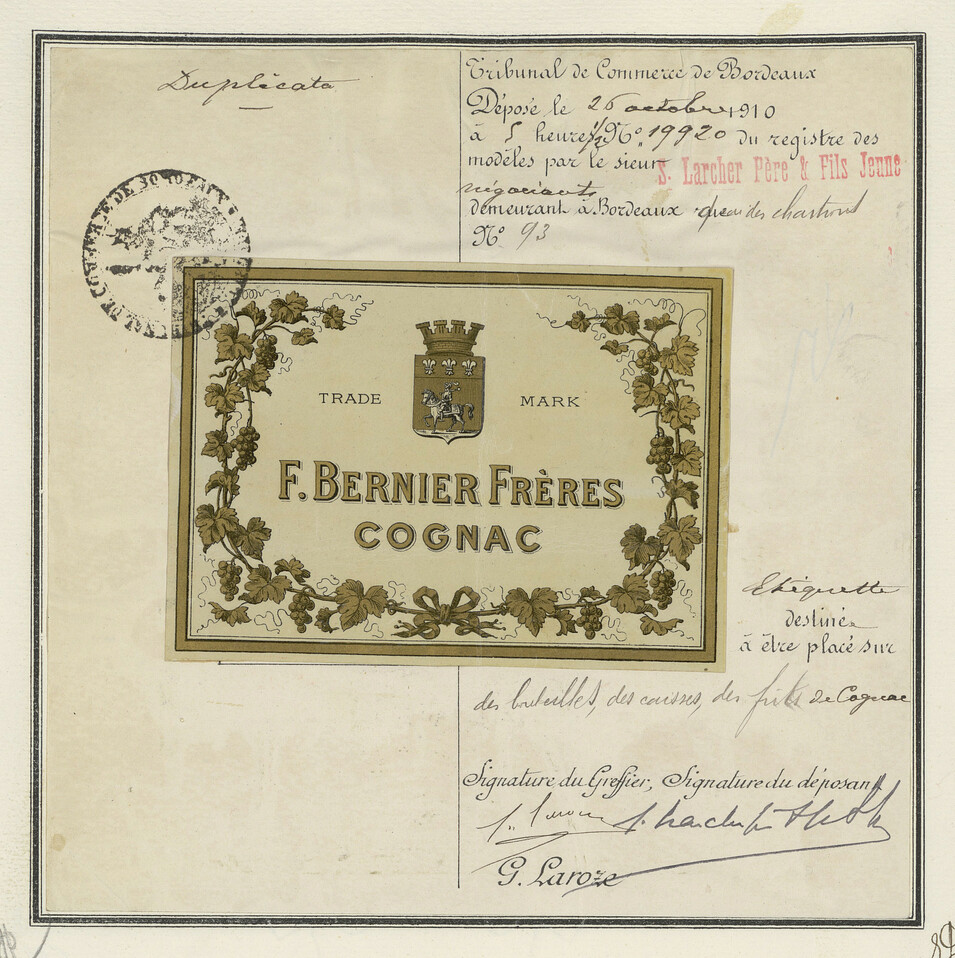 Duplicata
Tribunal de Commerce de Bordeaux
Déposé le 26 octobre 1910
à 5 heures 1/2 No. 19920 du registre des
modèles par le sieur S. Larcher Père & Fils Jeune
négociants
demeurant à Bordeaux quai des chartrons
No 93
TRADE MARK
F. BERNIER FRÈRES
COGNAC
Etiquette
destiné
à être placé sur
des bouteilles, des caisses, des fûts de Cognac
Signature du Greffier, Signature du déposant
G. Laroze